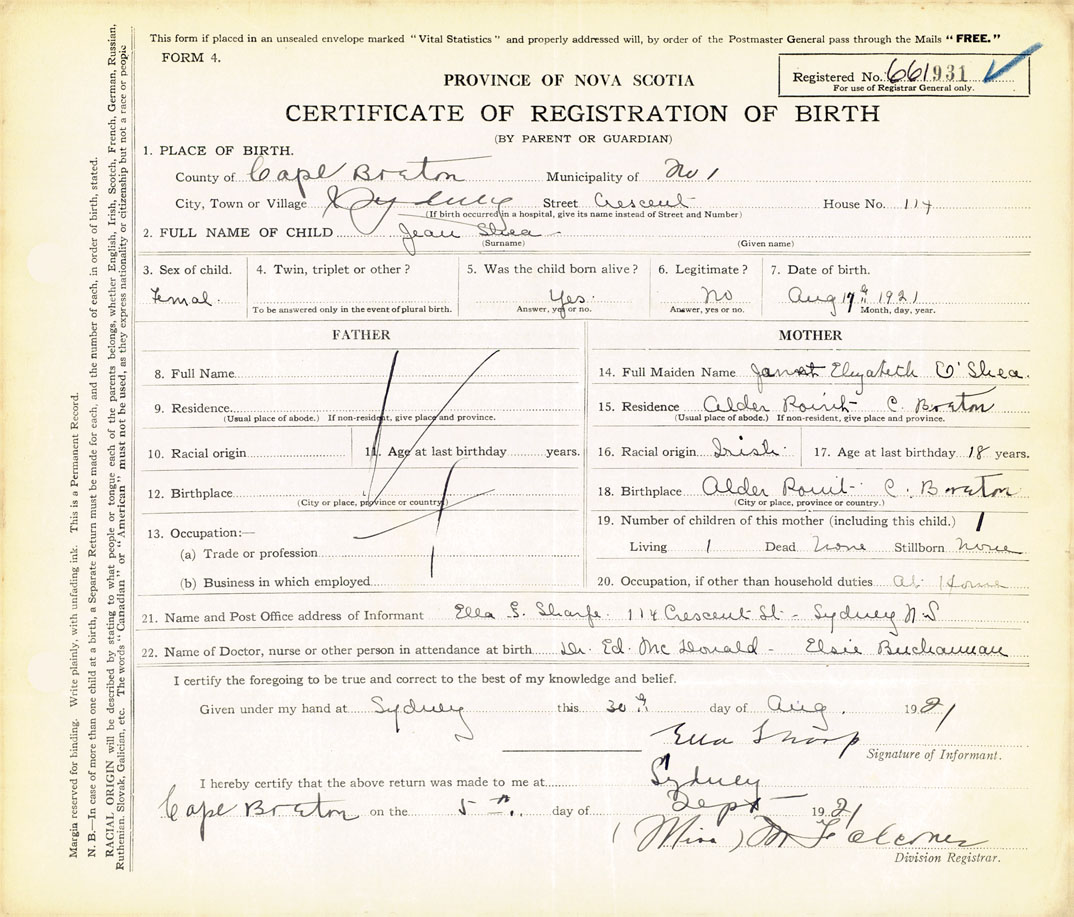 This form if placed in an unsealed envelope marked "Vital Statistics" and properly addressed will, by order of the Postmaster General pass through the Mails "FREE."
FORM 4.
Registered No. 661931
For use of Registrar General only.
PROVINCE OF NOVA SCOTIA
CERTIFICATE OF REGISTRATION OF BIRTH
(BY PARENT OR GUARDIAN)
1. PLACE OF BIRTH.
County of Cape Breton Municipality of No 1
City, Town or Village Sydney Street Crescent House No. 114
(If birth occurred in a hospital, give its name instead of Street and Number)
2. FULL NAME OF CHILD Jean Shea -
(Surname) (Given name)
3. Sex of child. 4. Twin, triplet or other? 5. Was the child born alive? 6. Legitimate? 7. Date of birth.
Femal. Yes. No Aug 17th 1921
To be answered only in the event of plural birth. Answer, yes or no. Answer, yes or no. Month, day, year.
FATHER
8. Full Name
9. Residence
(Usual place of abode.) If non-resident, give place and province.
10. Racial origin 11. Age at last birthday years.
12. Birthplace
(City or place, province or country.)
13. Occupation:—
(a) Trade or profession
(b) Business in which employed
MOTHER
14. Full Maiden Name Janet Elizabeth O'Shea.
15. Residence Alder Point - C. Breton
(Usual place of abode.) If non-resident, give place and province.
16. Racial origin Irish. 17. Age at last birthday 18 years.
18. Birthplace Alder Point - C. Breton
(City or place, province or country.)
19. Number of children of this mother (including this child.) 1
Living 1 Dead None Stillborn None
20. Occupation, if other than household duties At Home
21. Name and Post Office address of Informant Ella S. Sharfe. 114 Crescent St - Sydney N.S
22. Name of Doctor, nurse or other person in attendance at birth Dr. Ed. Mc Donald - Elsie Buchannan
I certify the foregoing to be true and correct to the best of my knowledge and belief.
Given under my hand at Sydney this 30th day of Aug. 1921
Ella Sharp
Signature of Informant.
I hereby certify that the above return was made to me at Sydney
Cape Breton on the 5th. day of Sept 1921
(Miss) M Falconer
Division Registrar.
Margin reserved for binding. Write plainly, with unfading ink. This is a Permanent Record.
N. B.—In case of more than one child at a birth, a Separate Return must be made for each, and the number of each, in order of birth, stated.
RACIAL ORIGIN will be described by stating to what people or tongue each of the parents belongs, whether English, Irish, Scotch, French, German, Russian,
Ruthenian, Slovak, Galician, etc. The words "Canadian" or "American" must not be used, as they express nationality or citizenship but not a race or people